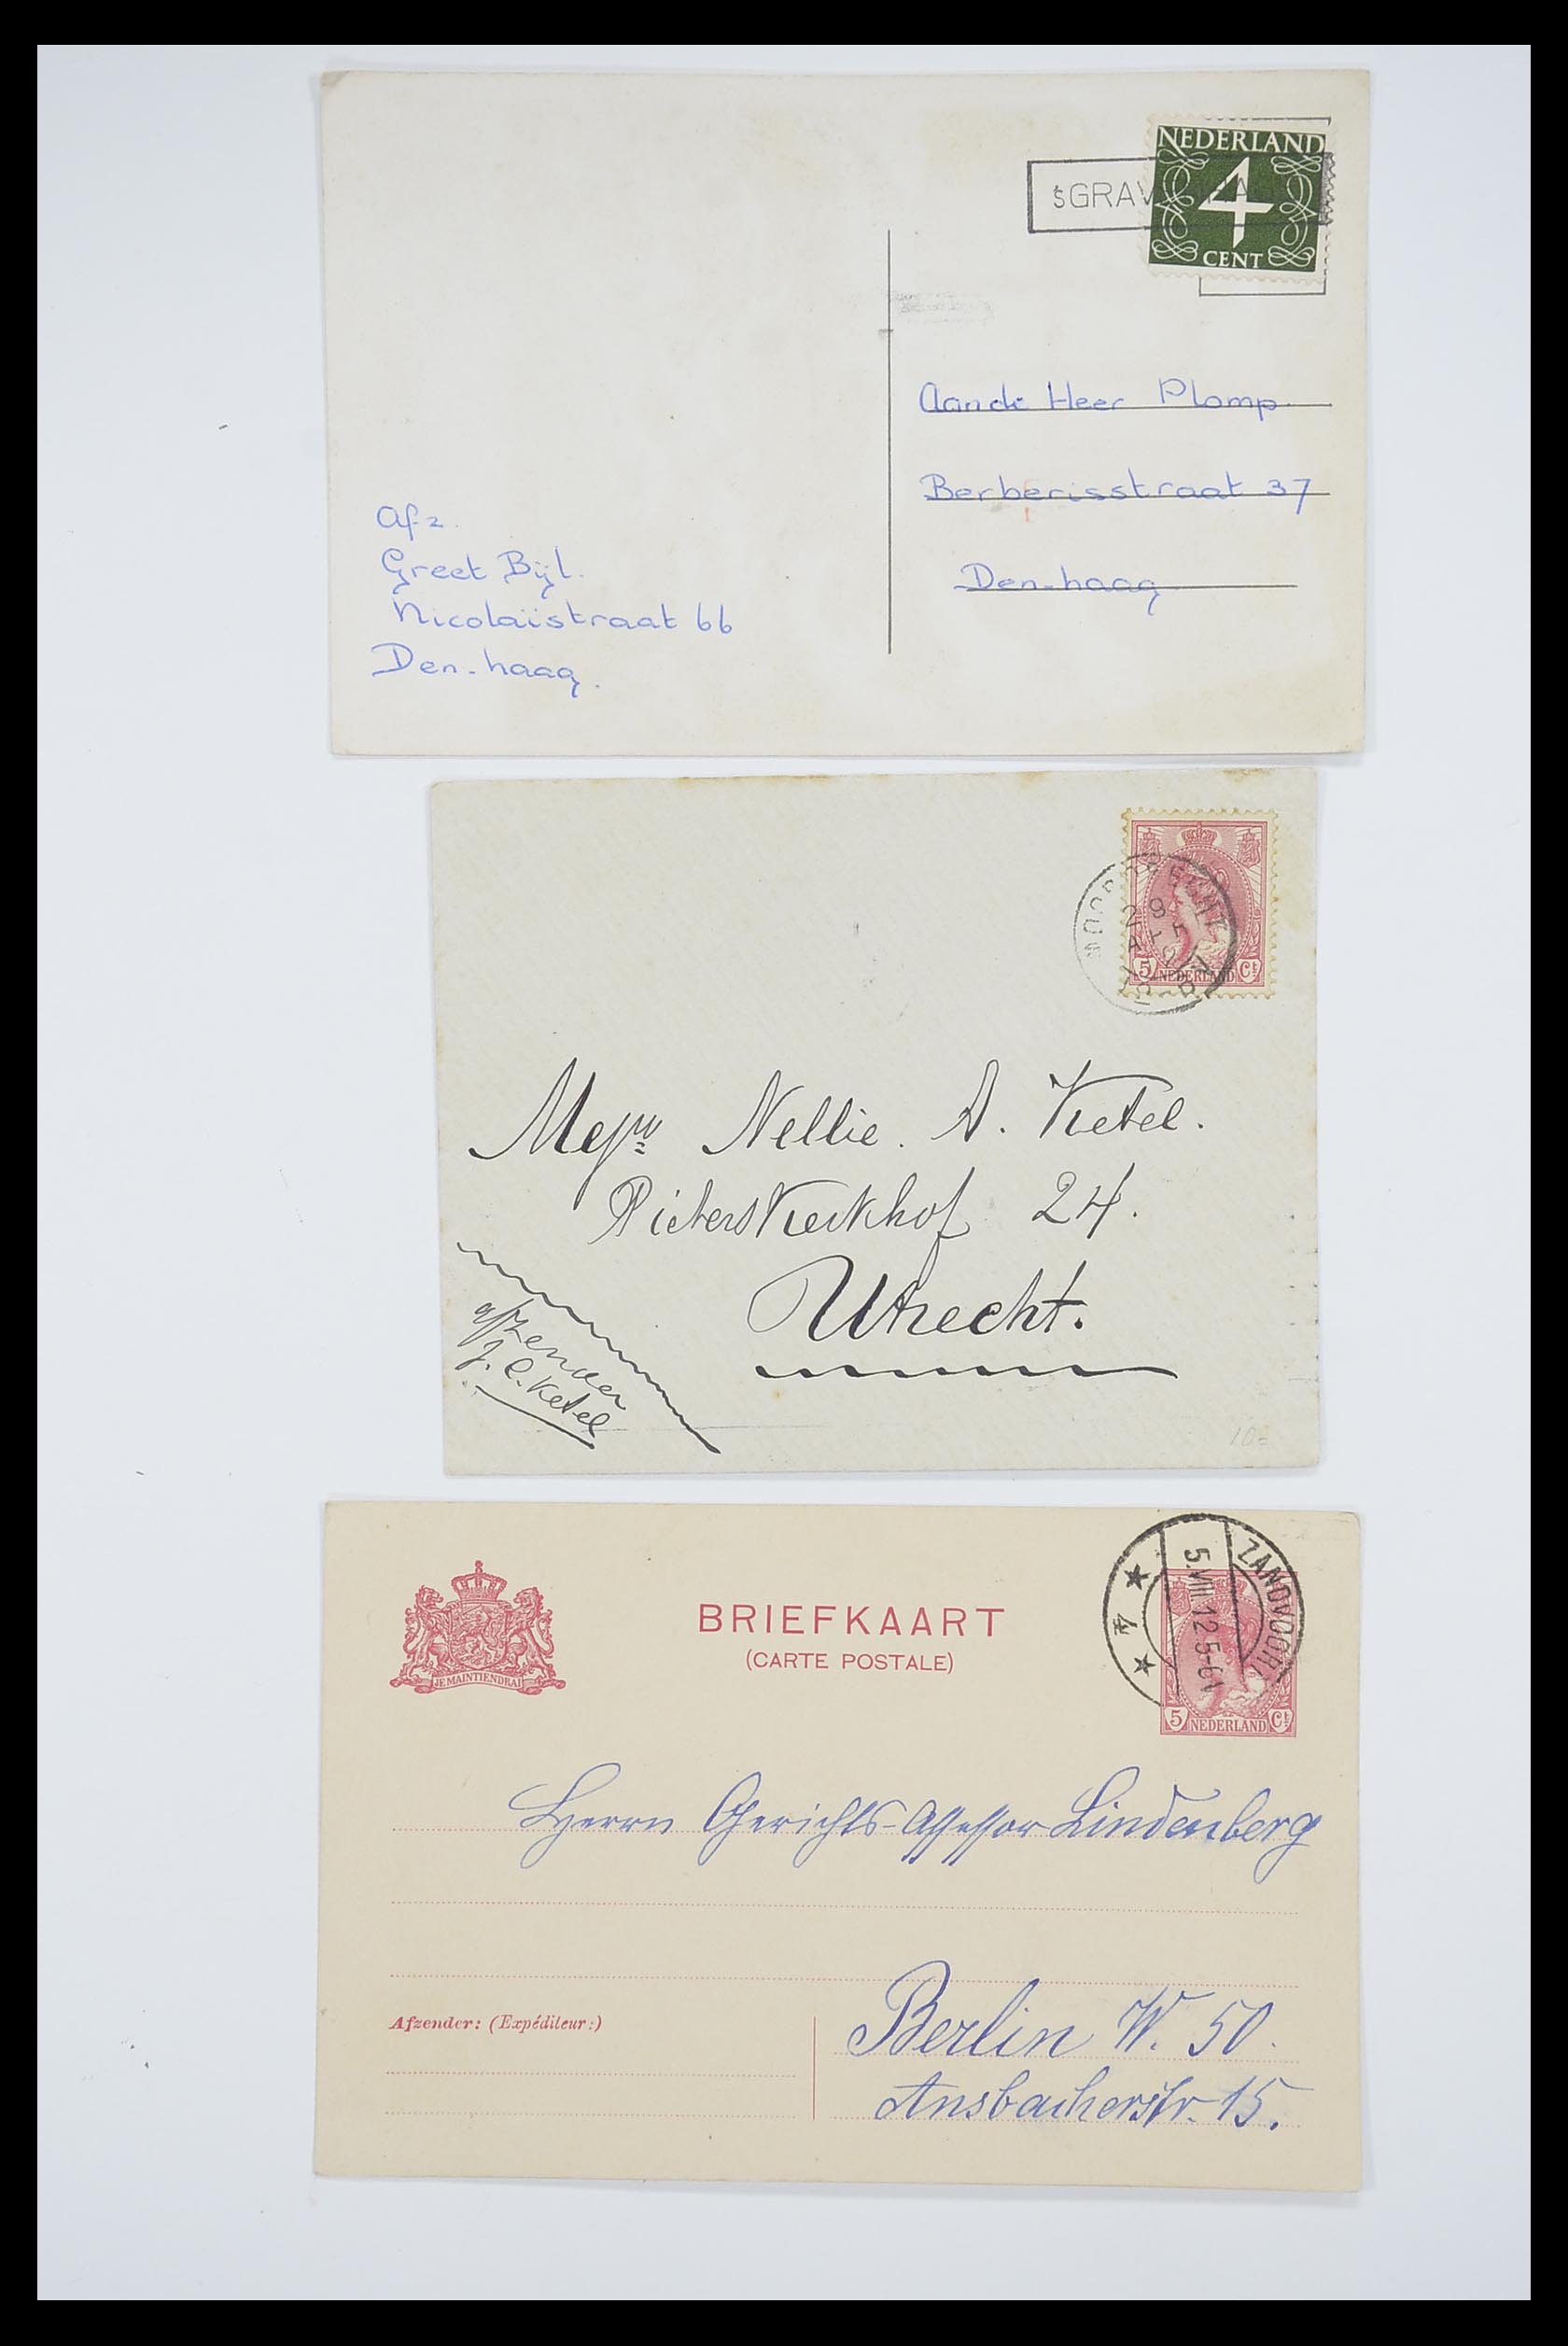 NEDERLAND
4
CENT
'sGRAV
Aan de Heer Plomp.
Berberisstraat 37
Den-haag
Afz.
Greet Bijl.
Nicolaïstraat 66
Den-haag.
5 NEDERLAND Ct
29
12-
Mejw Nellie. A. Ketel.
Pieterskerkhof 24.
Utrecht.
afzender
J. C. Ketel
10=
ZANDVOORT
5.VIII.12.5-6
4
BRIEFKAART
(CARTE POSTALE)
JE MAINTIENDRAI
5 NEDERLAND Ct
Herrn Gerichts-Assessor Lindenberg
Afzender: (Expéditeur:)
Berlin W. 50.
Ansbacherstr. 15.